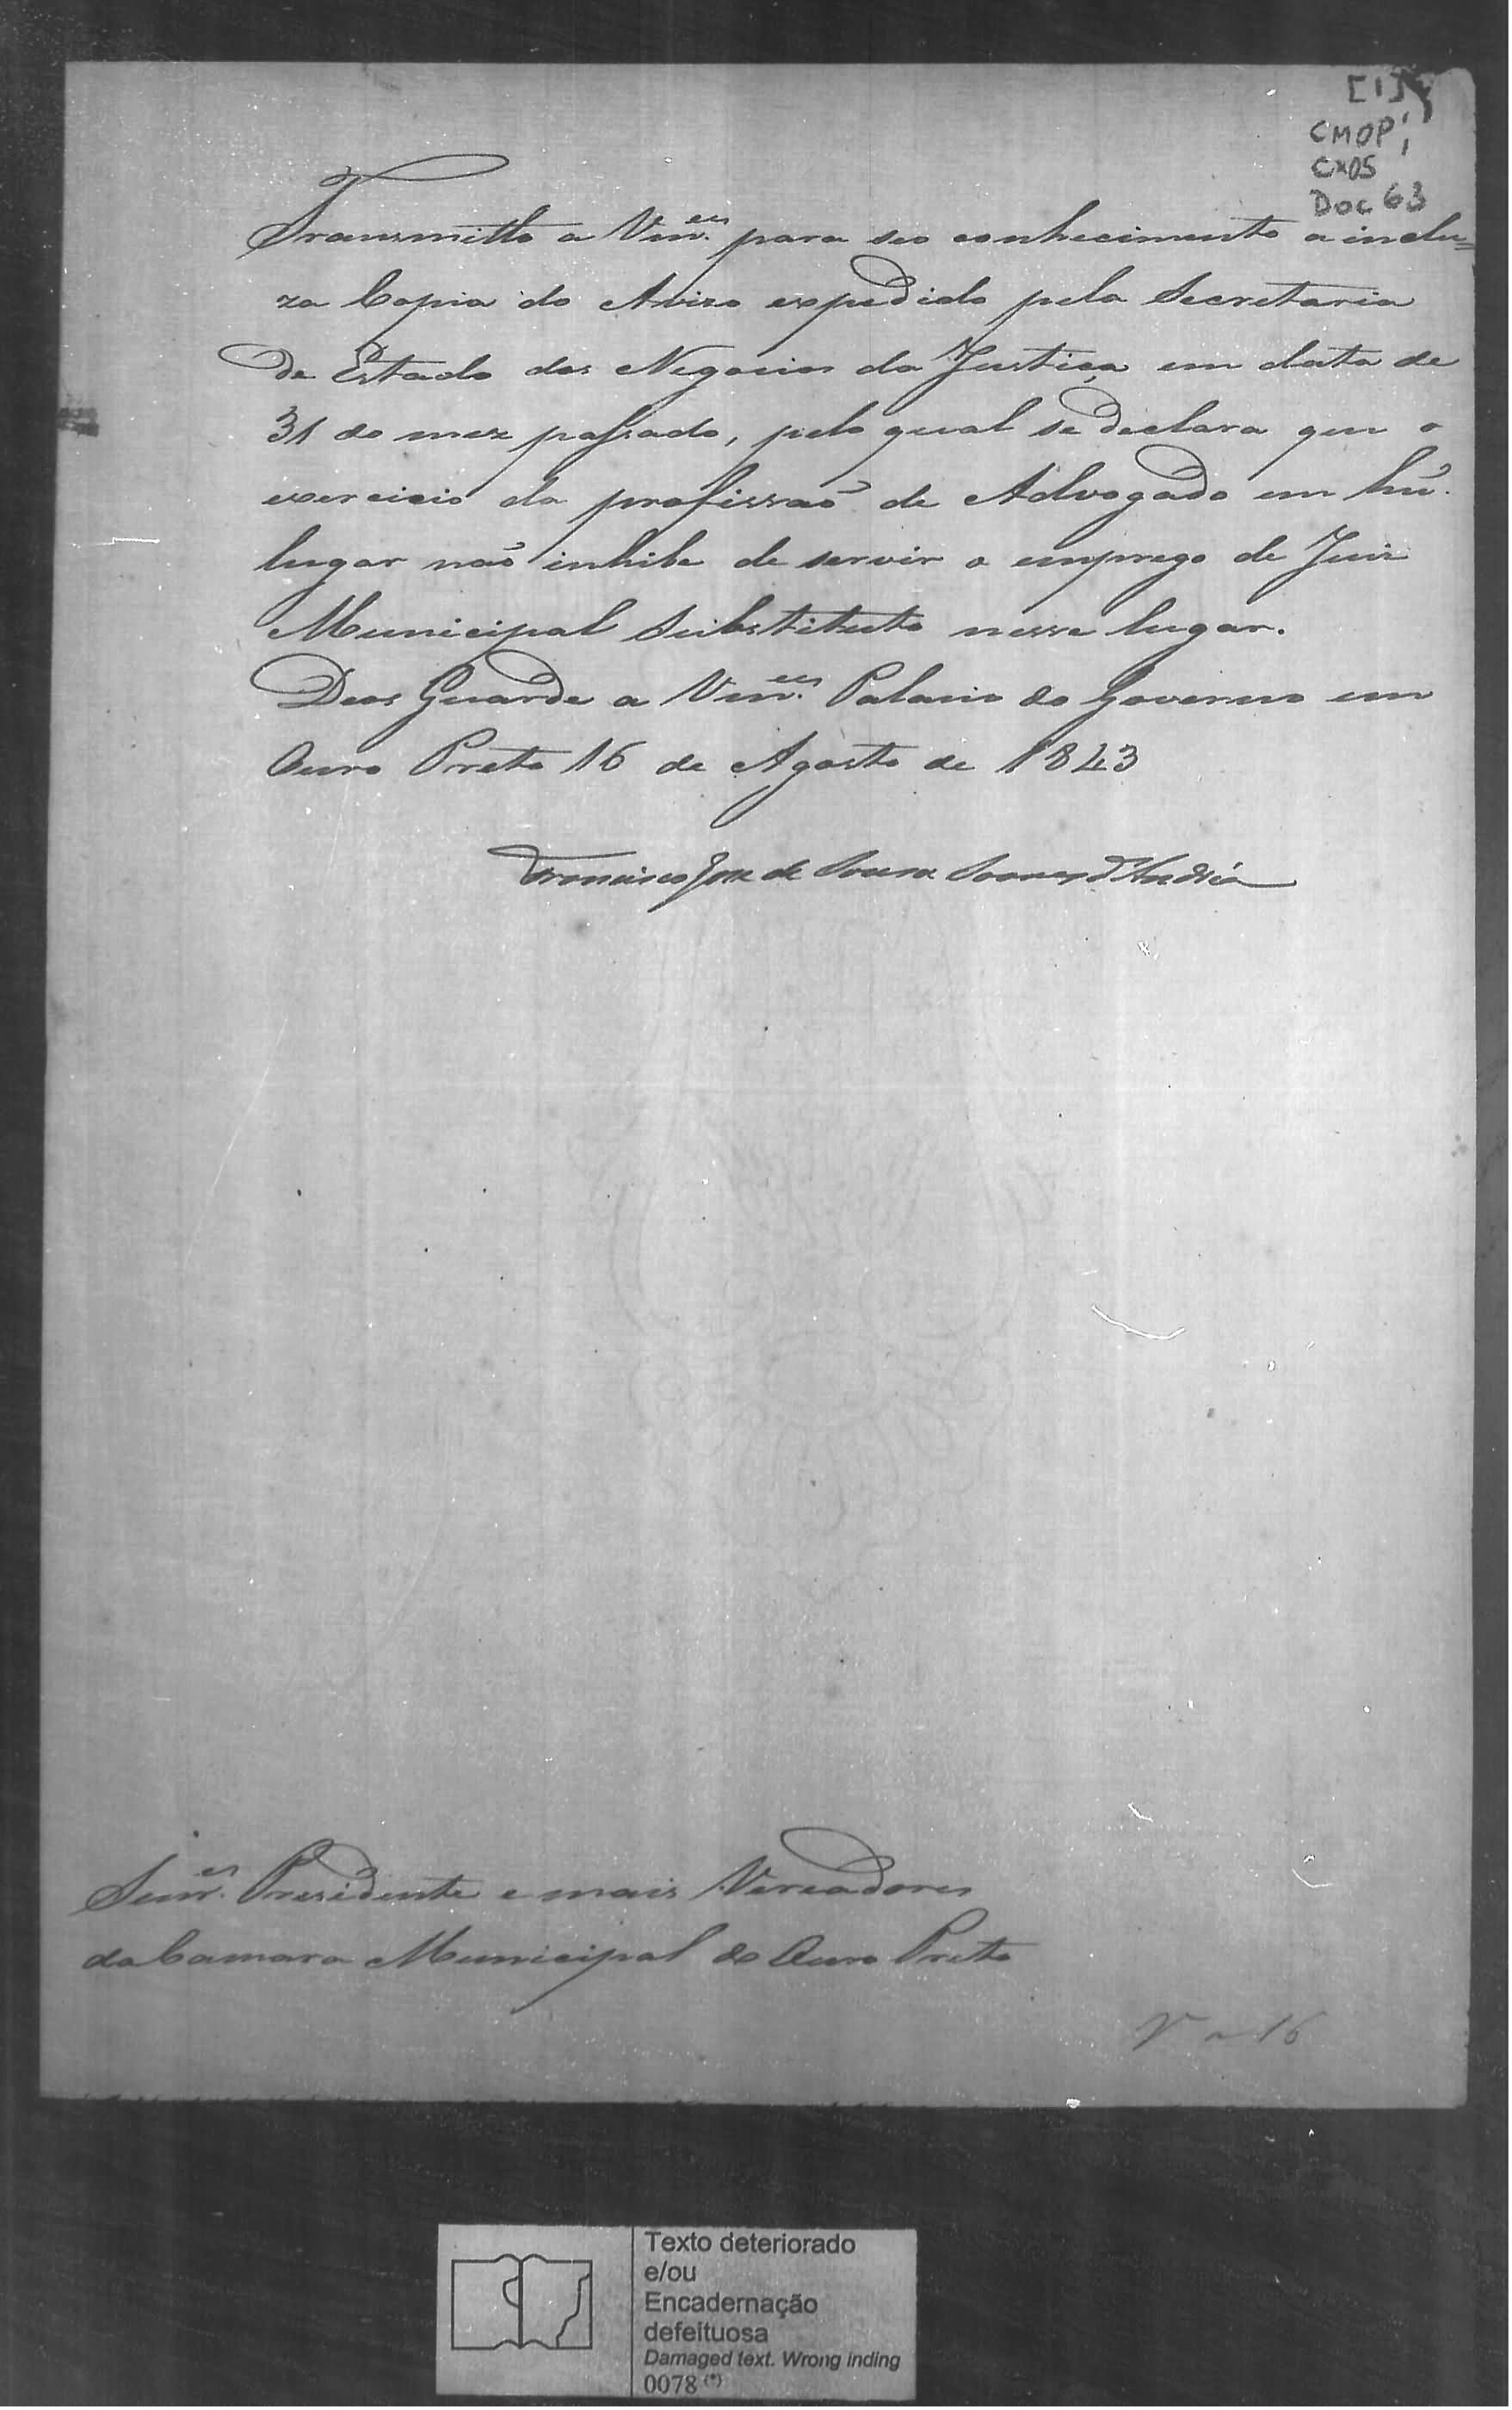 [1]
CMOP
CX05
Doc 63
Transmitto a Vm.ces para seo conhecimento a inclu=
za Copia do Avizo expedido pela Secretaria
de Estado dos Negocios da Justiça em data de
31 do mez passado, pelo qual se declara que o
exercicio da profissaõ de Advogado em hũ
lugar naõ inhibe de servir o emprego de Juiz
Municipal Substituto nesse lugar.
Deos Guarde a Vm.ces Palacio do Governo em
Ouro Preto 16 de Agosto de 1843
Francisco Joze de Souza Soares d'Andréa
Senr.es Presidente e mais Vereadores
da Camara Municipal do Ouro Preto
Texto deteriorado
e/ou
Encadernação
defeituosa
Damaged text. Wrong inding
0078 (*)